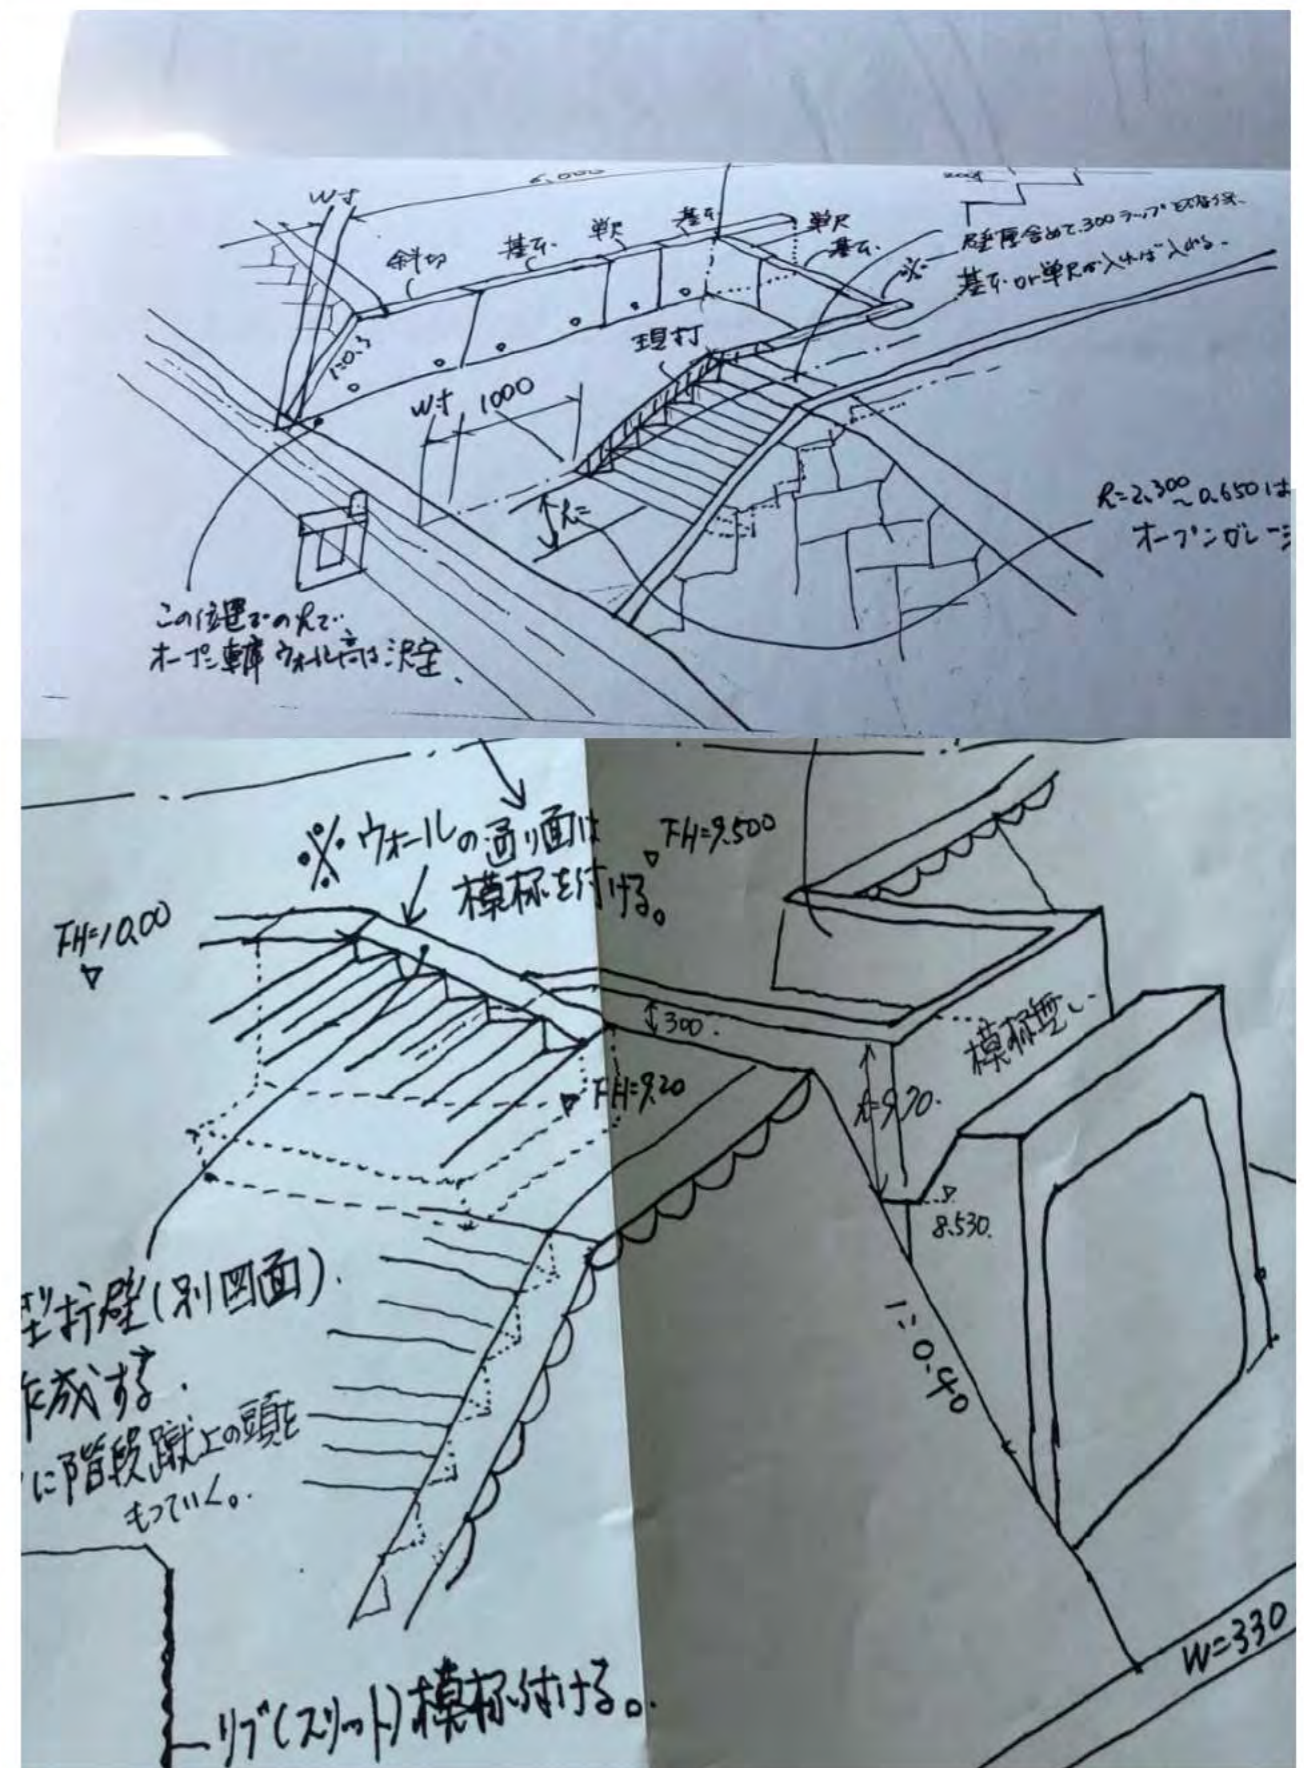 6,000
W寸
斜切
基本
単尺
基本
単尺
基本
※ 壁厚含めて、300ラップを
基本or単尺が入れば入れる。
1:0.3
現打
W寸
1000
h=
h=2,300
~0.650は
オープンガレージ
この位置でのhで
オープン車庫ウォール高は決定、
※ウォールの通り面は
模様を付ける。
FH=9.500
FH=10.00
300
模様無い
FH=9.20
h=9.70
8.530
型擁壁(別図面)
作成する
に階段蹴上の頭を
もっていく。
1:0.40
W=330
リブ(スリット)模様付ける。